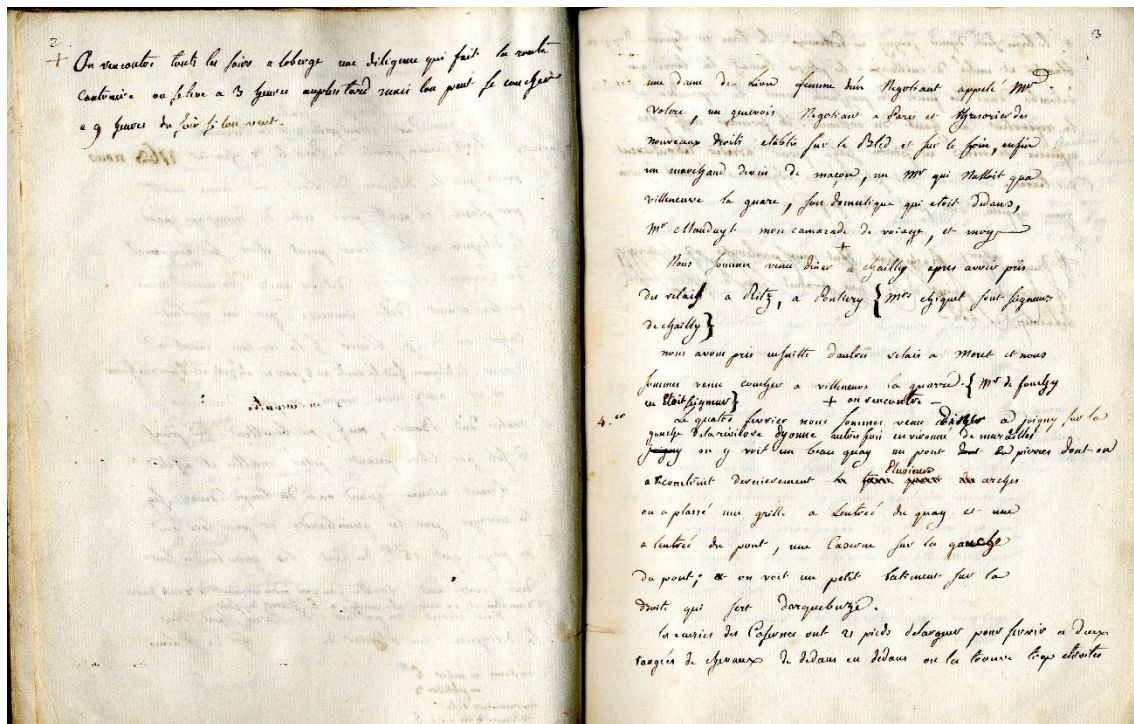 2
+ On rencontre touts les soirs a loberge une diligence qui fait la route
Contraire on se leve a 3 heures au plus tard mais lon peut se coucher
a 9 heures du soir si lon veut.
3
une dame de Lion femme d'un Negotiant appelé Mrd.
Volore, un Negotiant a Paris et thresorier des
nouveaux droits etablis sur le Bled et sur le foin, enfin
un marchand de vin de macon, un Mr qui Nalloit qua
villeneuve la guare, son domestique qui etoit dedans,
Mr Mauduyt mon camarade de voiage, et moy
+
Nous sommes venu diner a chailly apres avoir pris
des relais a Ritz, a Pontiery { Mrs chiquet sont seigneurs
de chailly }
nous avons pris ensuitte dautres relais a Moret et nous
sommes venu coucher a villeneuve la quarré. { Mr de fouchy
en Etoit seigneur } + on rencontre -
4. er Le quatre fevrier nous sommes venu diner a joigny, sur la
gauche de la riviere dyonne autre fois environné de murailles
joigny on y voit un beau quay un pont de pierres dont on
a reconstruit dernierement Plusieurs arches
on a plassé une grille a Lentreé du quay et une
a lentreé du pont, une Caserne sur la gauche
du pont; et on voit un petit batiment sur la
droite qui sert darquebuze.
les ecuries des Casernes ont 21 pieds de largeur pour servir a deux
rangées de chevaux de dedans en dedans on les trouve trop etroites